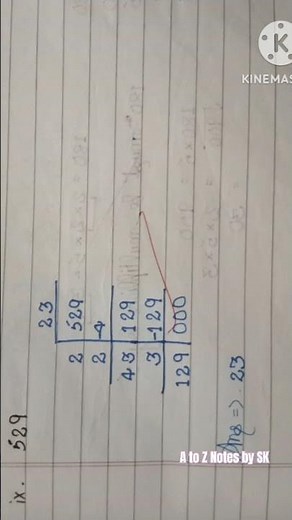 ix. 529
23
2 529
2 -4
43 129
3 -129
129 000
Ans => 23
A to Z Notes by SK
KINEMAS